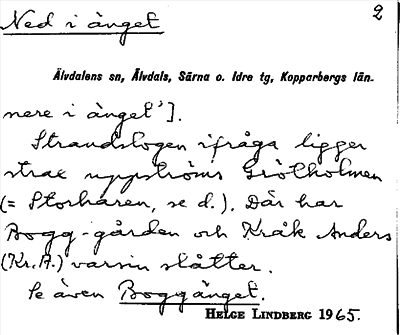 Ned i änget
2
Älvdalens sn, Älvdals, Särna o. Idre tg, Kopparbergs län.
nere i änget'].
Strandslogen ifråga ligger
strax uppströms Grötholmen
(= Storharen, se d.). Där har
Bogg-gården och Kråk Anders
(Kr.A.) varsin slåtter.
Se även Boggänget.
HELGE LINDBERG 1965.